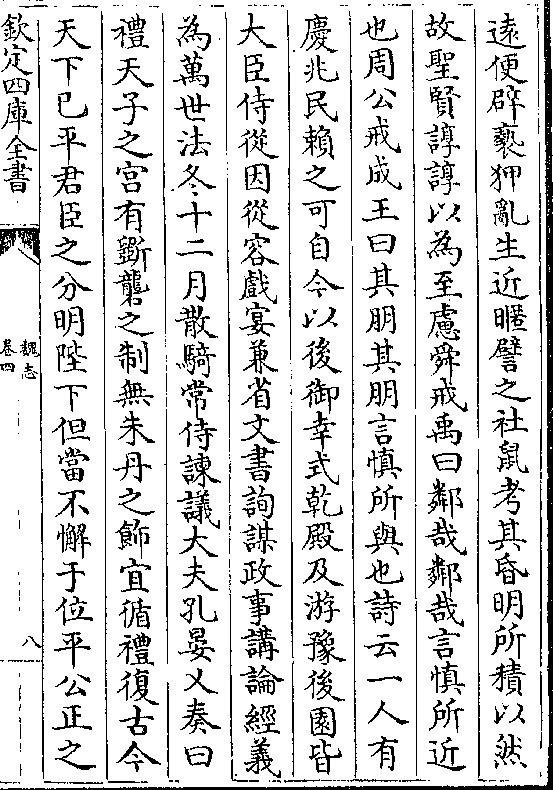 遠便辟褻狎亂生近暱譬之社鼠考其昏明所積以然
故聖賢諄諄以為至慮舜戒禹曰鄰哉鄰哉言慎所近
也周公戒成王曰其朋其朋言慎所與也詩云一人有
慶兆民賴之可自今以後御幸式乾殿及游豫後園皆
大臣侍從因從容戲宴兼省文書詢謀政事講論經義
為萬世法冬十二月散騎常侍諫議大夫孔晏乂奏曰
禮天子之宮有斲礱之制無朱丹之飾宜循禮復古今
天下已平君臣之分明陛下但當不懈于位平公正之
欽定四庫全書
魏志
卷四
八